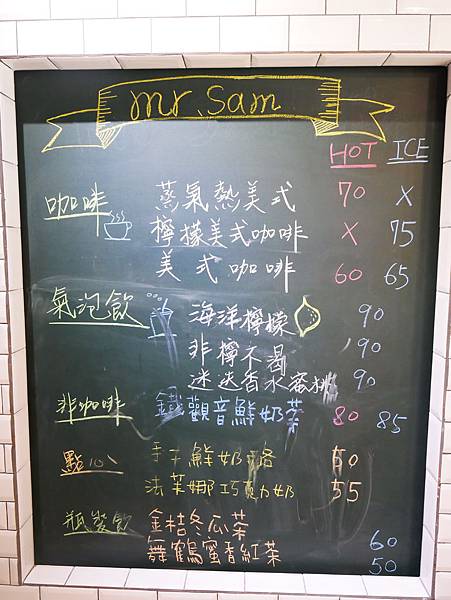 mr. Sam
HOT ICE
咖啡 蒸氣熱美式 70 X
檸檬美式咖啡 X 75
美式咖啡 60 65
氣泡飲 海洋檸檬 90
非檸不渴 90
迷迭香水蜜桃 90
非咖啡 鐵觀音鮮奶茶 80 85
點心 手工鮮奶酪 60
法芙娜巧克力奶 55
瓶裝飲 金桔冬瓜茶 60
舞鶴蜜香紅茶 50